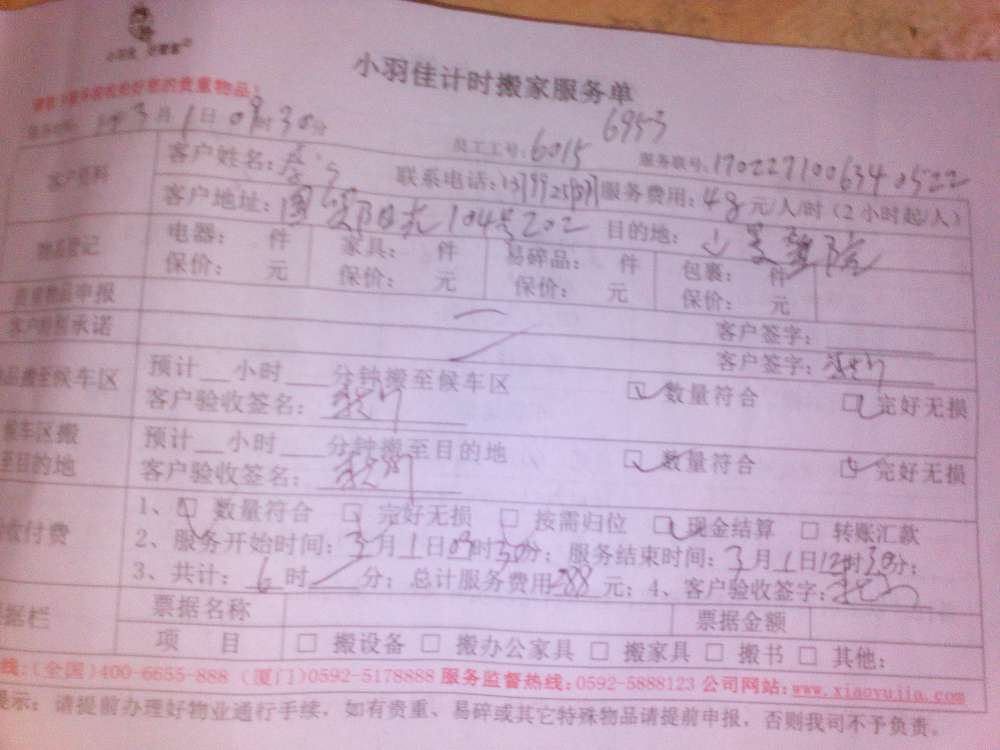 小羽佳计时搬家服务单
您的贵重物品:
3月1日09时30分 6953
员工工号:6015 服务联号:170227100634 0522
客户资料 客户姓名: 联系电话: 服务费用:48元/人/时(2小时起/人)
客户地址: 104号202 目的地:
物品登记 电器: 件 家具: 件 易碎品: 件 包裹: 件
保价: 元 保价: 元 保价: 元 保价: 元
物申报 客户签字:
承诺 客户签字:
品搬至候车区 预计__小时__分钟搬至候车区 数量符合 完好无损
客户验收签名:
候车区搬 预计__小时__分钟搬至目的地 数量符合 完好无损
至目的地 客户验收签名:
收付费 1、□ 数量符合 □ 完好无损 □ 按需归位 □ 现金结算 □ 转账汇款
2、服务开始时间:3月1日09时30分;服务结束时间:3月1日12时30分;
3、共计:6时 分;总计服务费用288元;4、客户验收签字:
据栏 票据名称 票据金额
项 目 □ 搬设备 □ 搬办公家具 □ 搬家具 □ 搬书 □ 其他:
线:(全国)400-6655-888 (厦门)0592-5178888 服务监督热线:0592-5888123 公司网站:www.xiaoyujia.com
提示:请提前办理好物业通行手续,如有贵重、易碎或其它特殊物品请提前申报,否则我司不予负责。